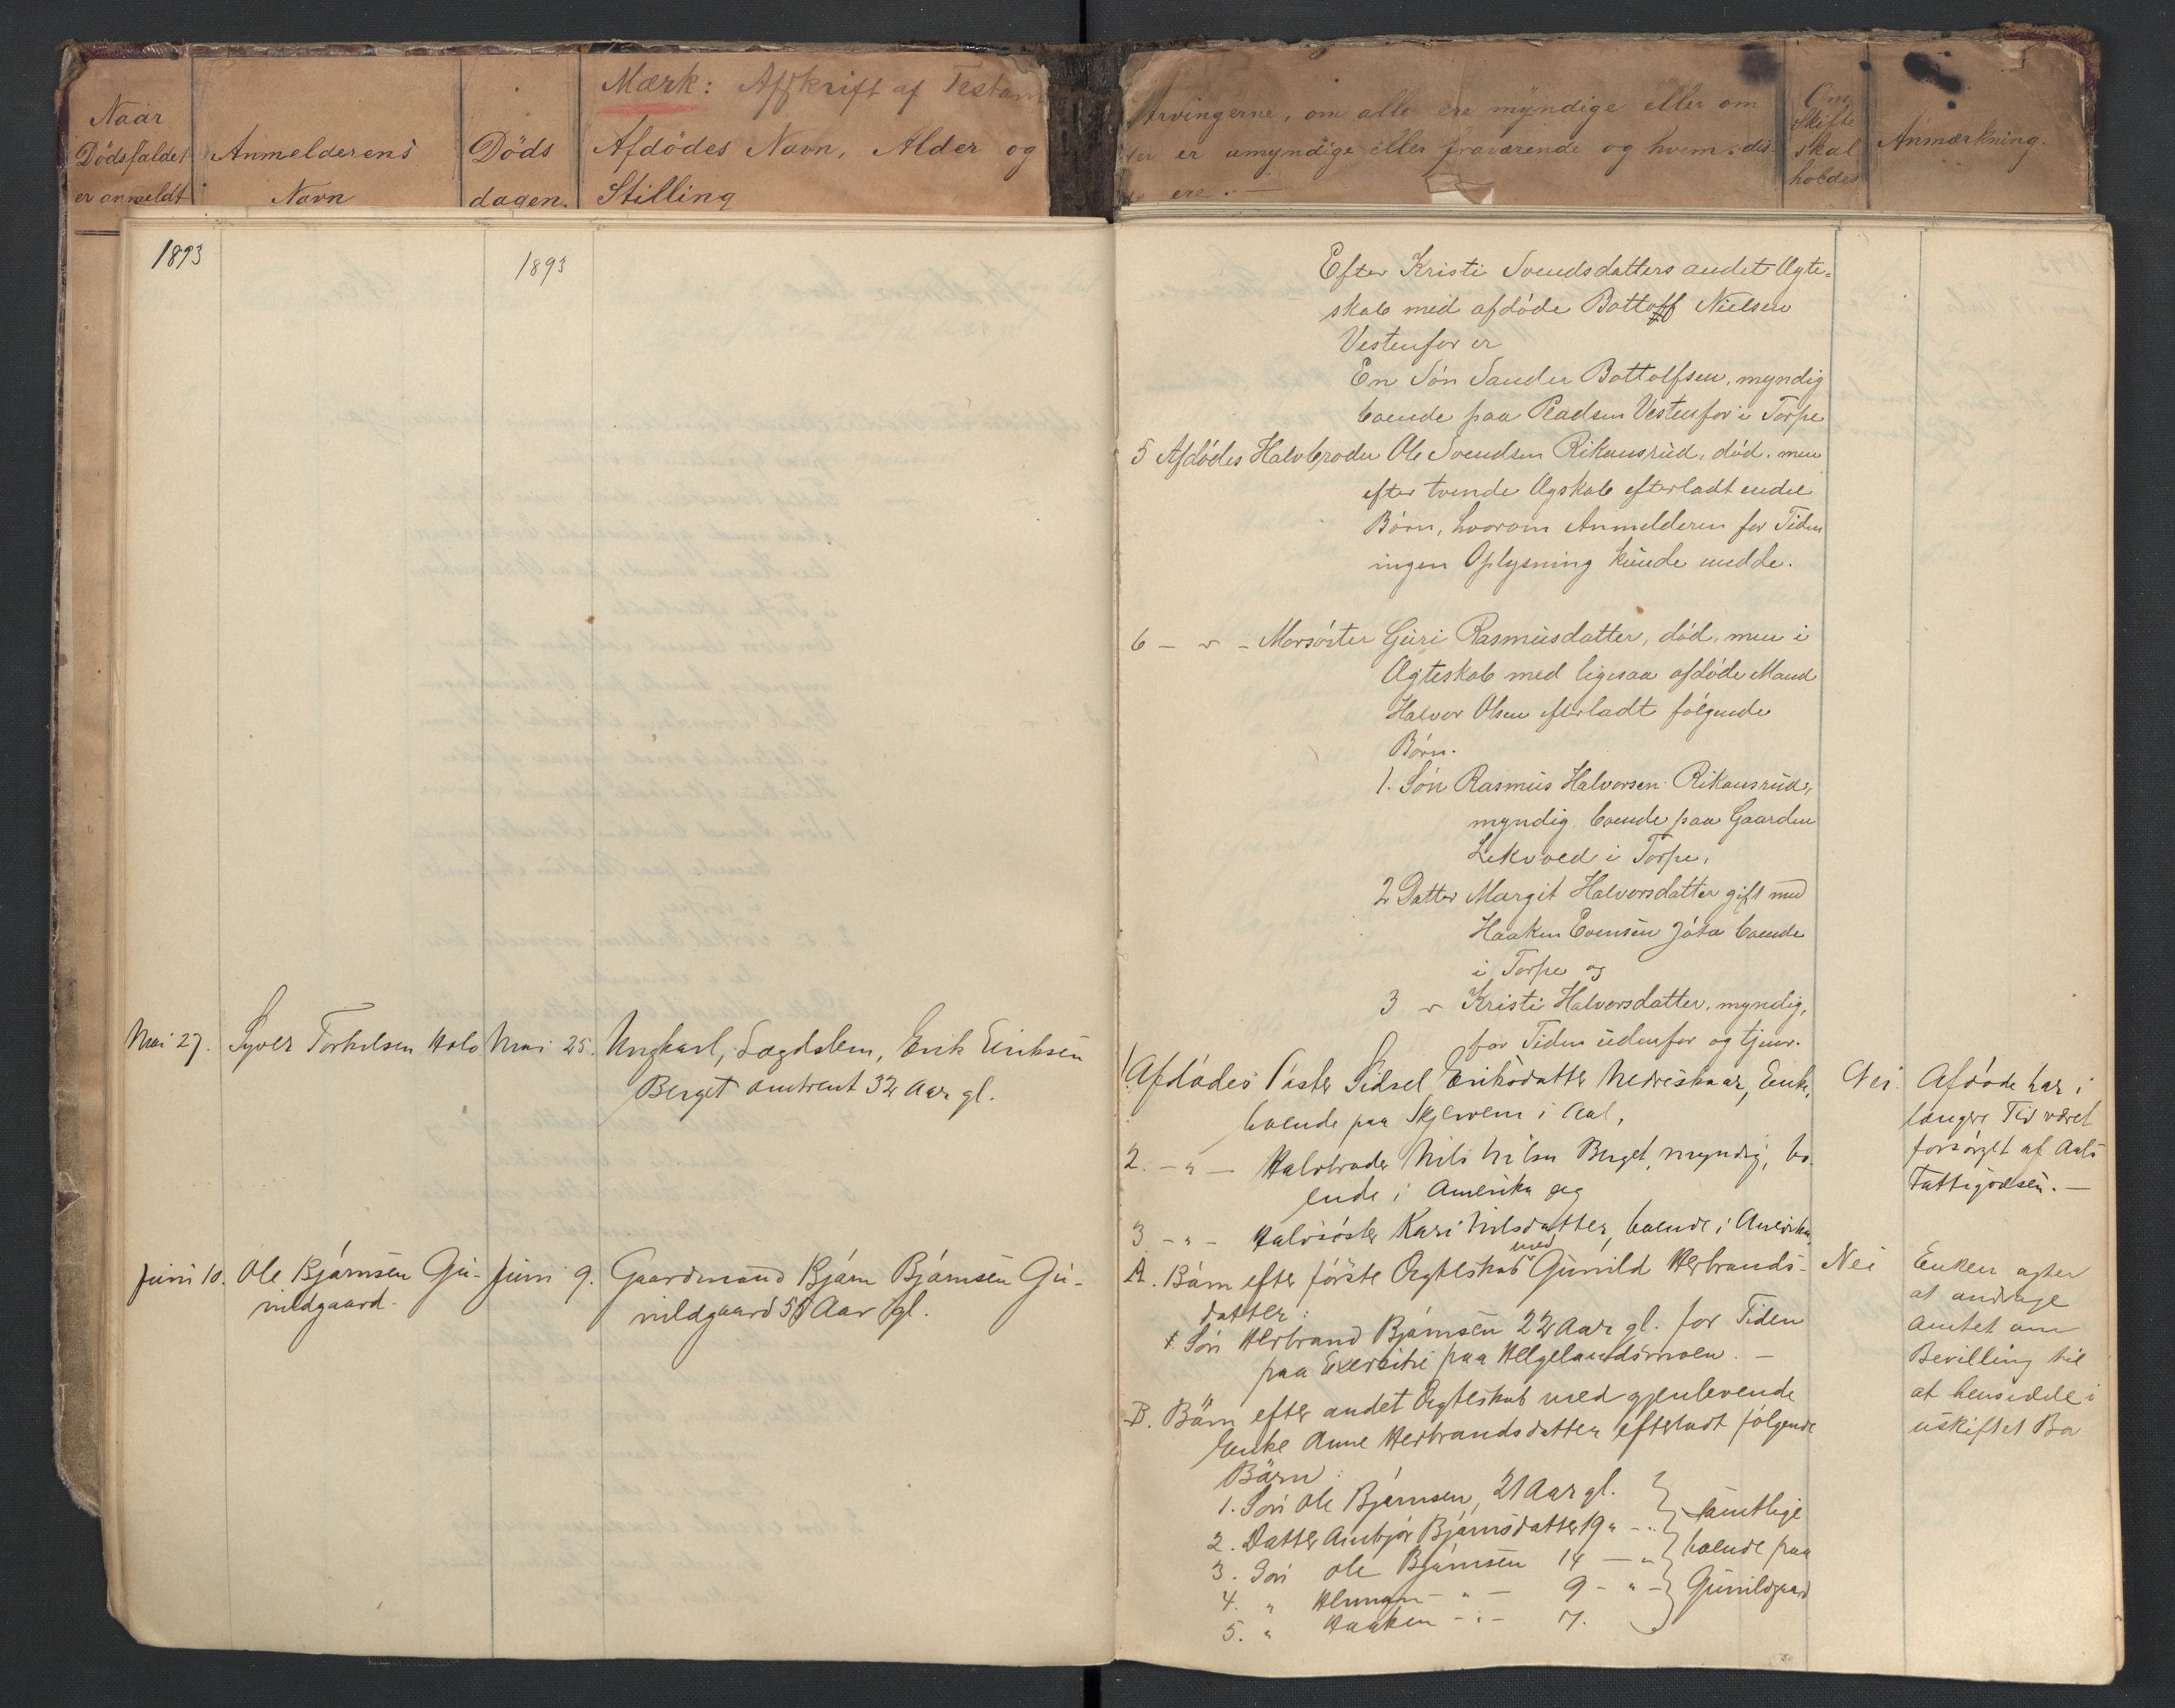 Naar
Dödsfaldet
er anmeldt
Anmelderens
Navn
Döds
dagen.
Mærk: Afskrift af Testam
Afdödes Navn, Alder og
Stilling
Arvingerne, om alle ere myndige eller om
er umyndige eller fraværende og hvem
ere. —
Om
Skifte
skal
holdes
Anmærkning.
1893
1893
Efter Kristi Svendsdatters andet Ægte-
skab med afdöde Bottolf Nielsen
Vestenfor er
En Sön Sander Bottolfsen, myndig
boende paa Pladsen Vestenfor i Torpe
5 Afdödes Halvbroder Ole Svendsen Rikansrud, död, men
efter tvende Ægskab efterladt endel
Börn, hvorom Anmelderen for Tiden
ingen Oplysning kunde medde.
6 — " — Morsöster Guri Rasmusdatter, död, men i
Ægteskab med ligesaa afdöde Mand
Halvor Olsen efterladt fölgende
Börn.
1. Sön Rasmus Halvorsen Rikansrud,
myndig, boende paa Gaarden
Lekvold i Torpe,
2 Datter Margit Halvorsdatter gift med
Haaken Evensen boende
i Torpe og
3 " Kristi Halvorsdatter, myndig,
for Tiden udenfor og tjener.
Mai 27. Syver Torkelsen Holo Mai 25. Ungkarl, Lægdslem, Erik Eriksen
Berget omtrent 32 Aar gl.
1. Afdödes Söster Sidsel Eriksdatter Nedreskaar, Enke,
boende paa Skjerven i Aal,
2. — " — Halvbroder Nils Nilsen Berget, myndig, bo-
ende i Amerika og
3 — " — Halvsöster Kari Nilsdatter, boende i Amerika.
Nei.
Afdöde har i
længere Tid været
forsörget af Aals
Fattigvæsen. —
Juni 10. Ole Björnsen Gu-
nildgaard.
Juni 9. Gaardmand Björn Björnsen Gu-
nildgaard 55 Aar gl.
A. Börn efter förste Ægteskab med Gunild Herbrands-
datter:
1. Sön Herbrand Björnsen 22 Aar gl. for Tiden
paa Exersitie paa Helgelandsmoen. —
B. Börn efter andet Ægteskab med gjenlevende
Enke Anne Herbrandsdatter efterladt fölgende
Börn:
1. Sön Ole Björnsen, 21 Aar gl.
2. Datter Ambjör Björnsdatter 19 " — "
3. Sön Ole Björnsen 14 — "
4. " Henning — " — 9 — " —
5. " Haaken — " — 7.
samtlige
boende paa
Gunildgaard
Nei
Enken agter
at andrage
Amtet om
Bevilling til
at hensidde i
uskiftet Bo